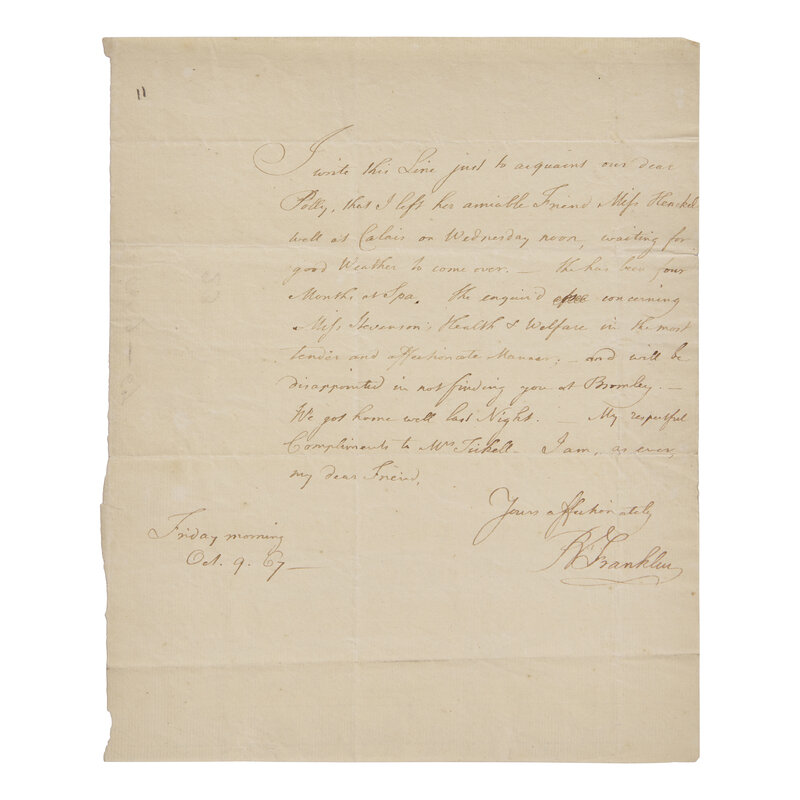 11
I write this Line just to acquaint our dear
Polly, that I left her amiable Friend Miss Henckel
well at Calais on Wednesday noon, waiting for
good Weather to come over. — She has been four
Months at Spa. She enquir'd concerning
Miss Stevenson's Health & Welfare in the most
tender and affectionate Manner; — and will be
disappointed in not finding you at Bromley. —
We got home well last Night. — My respectful
Compliments to Mrs Tickell. I am, as ever,
my dear Friend,
Yours affectionately
B Franklin
Friday morning
Oct. 9. 67 —